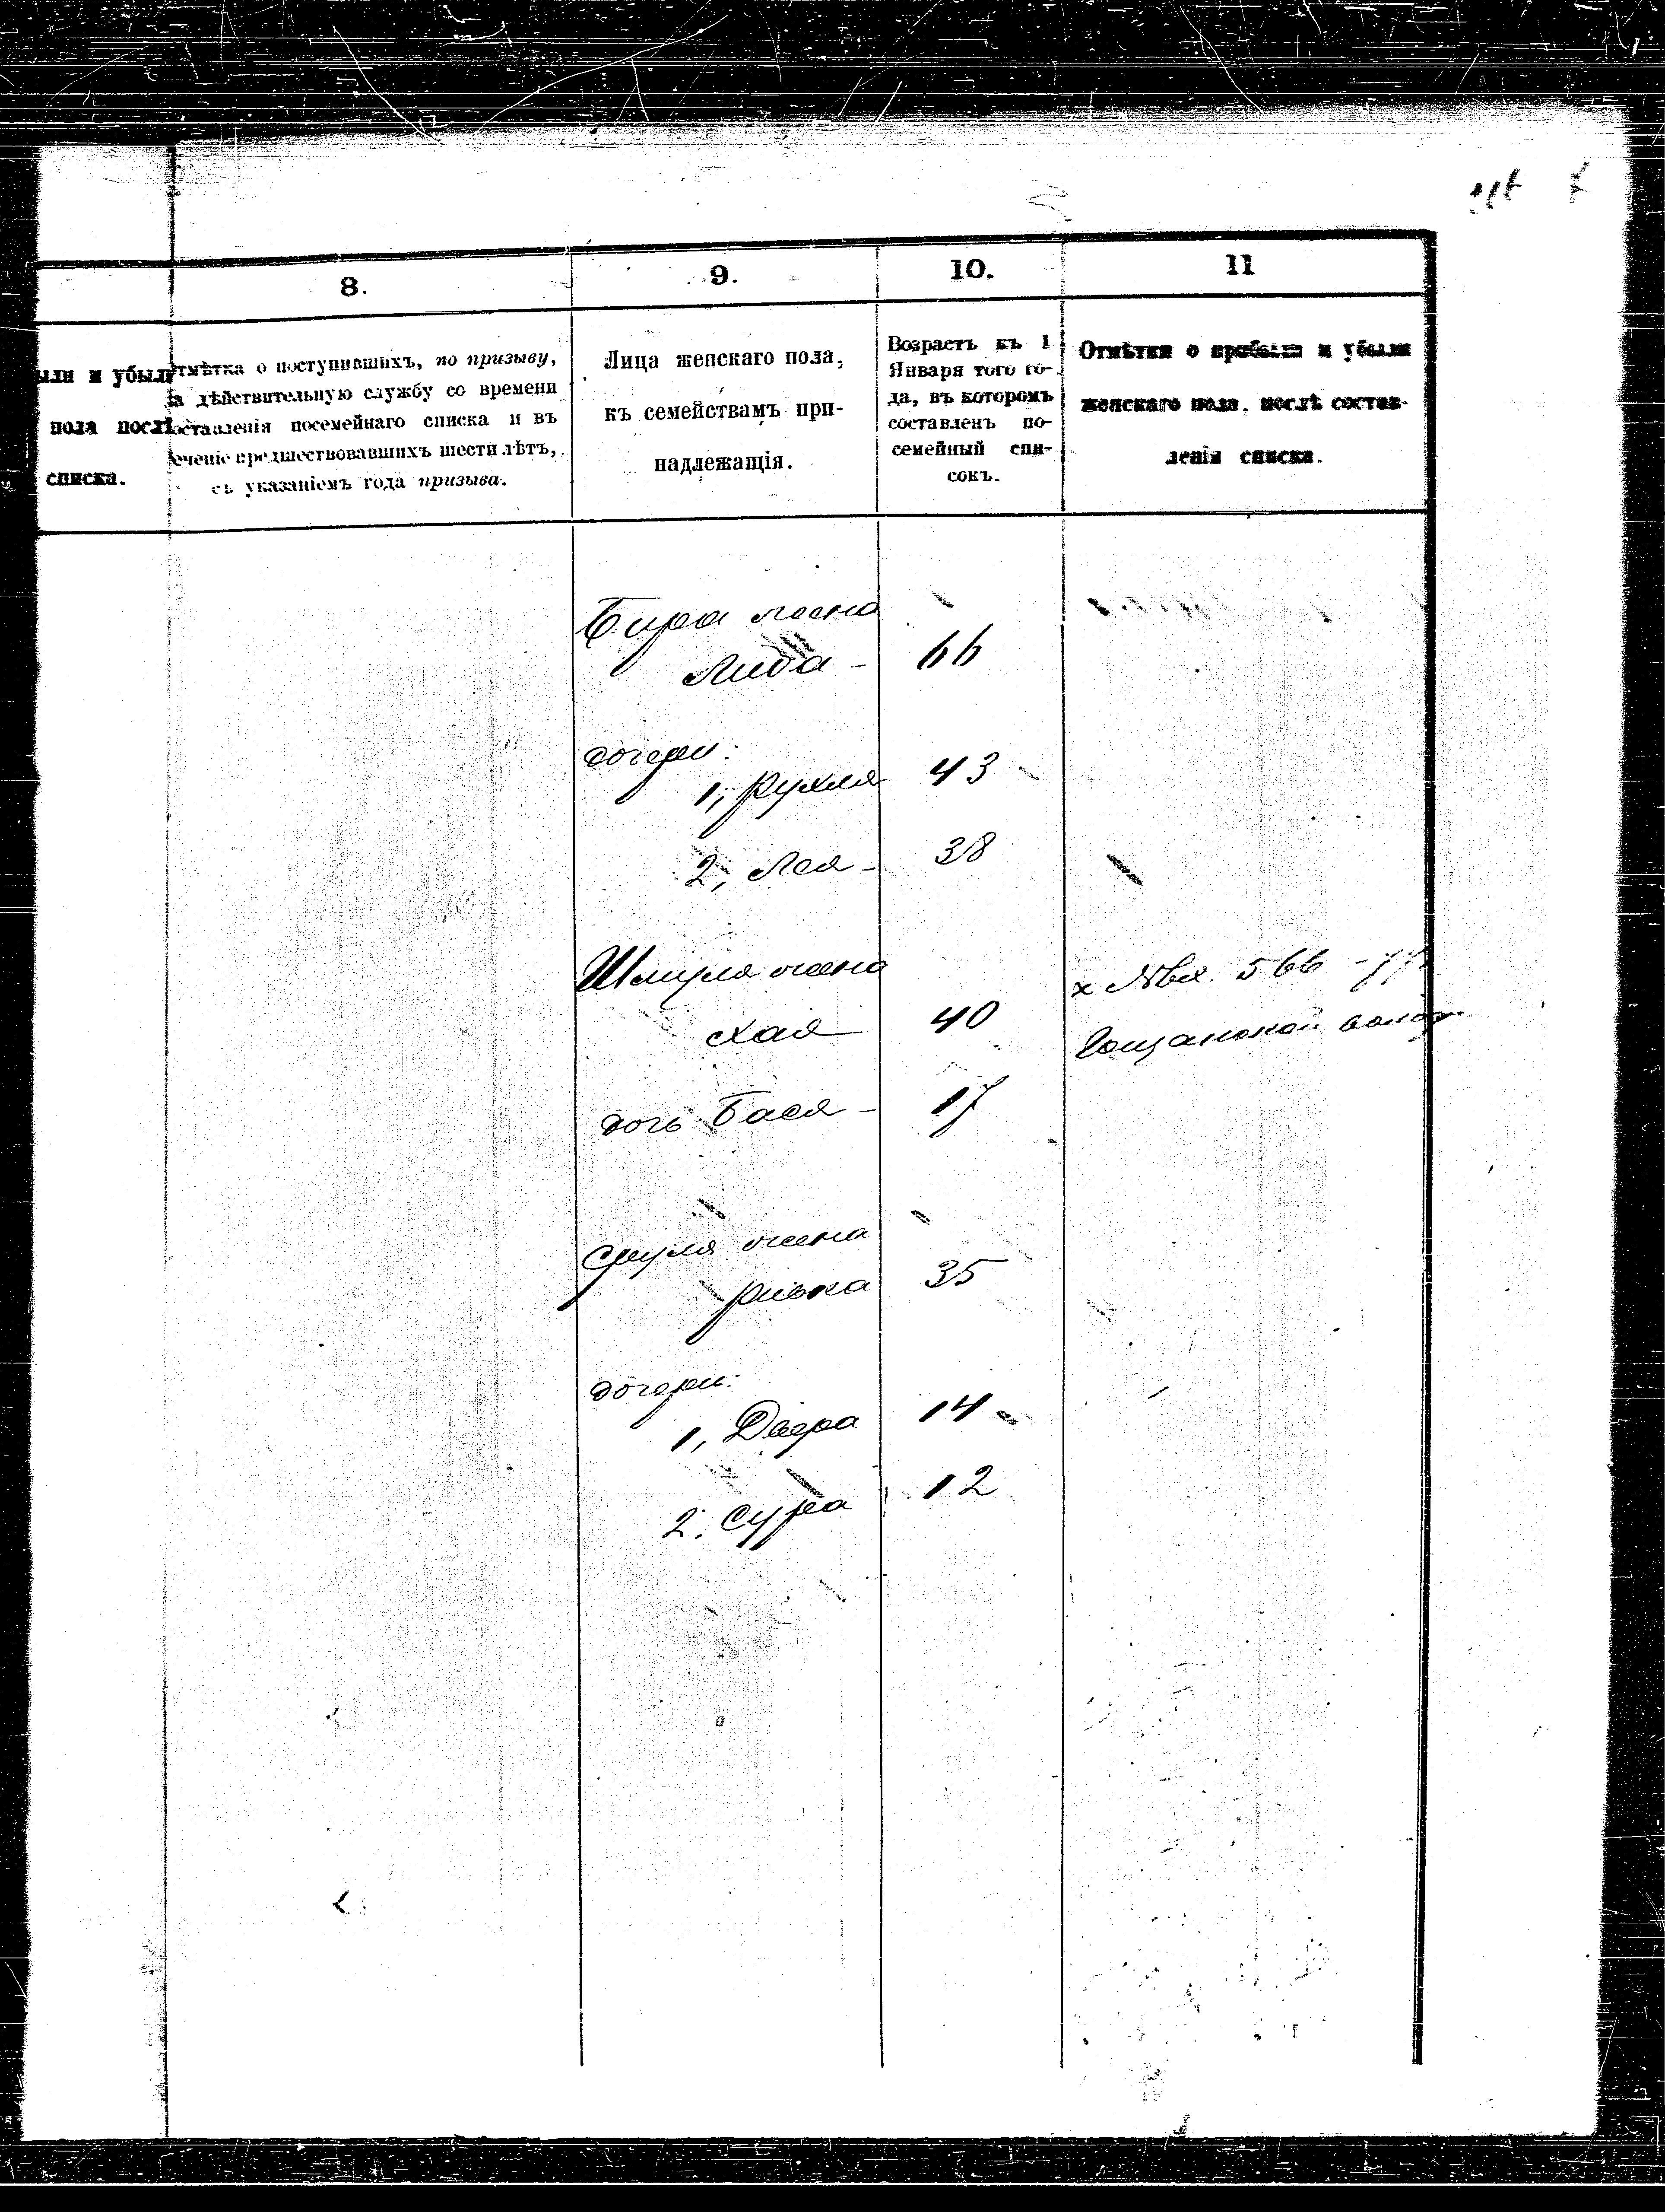 8.
9.
10.
11
ыли и убыли
пола послѣ
списка.
Отмѣтка о поступившихъ, по призыву,
на дѣйствительную службу со времени
составленія посемейнаго списка и въ
теченіе предшествовавшихъ шести лѣтъ,
съ указаніемъ года призыва.
Лица женскаго пола,
къ семействамъ при-
надлежащія.
Возрастъ къ 1
Января того го-
да, въ которомъ
составленъ по-
семейный спи-
сокъ.
Отмѣтки о прибыли и убыли
женскаго пола, послѣ состав-
ленія списка.
жена
Либа - 66
дочери:
1, Рухля 43
2, Лея - 38
Шмуля жена
Хая 40
х №вх. 566
дочь Бася - 17
Сруля жена
Ривка 35
дочери:
1, Двера 14
2. Сура 12